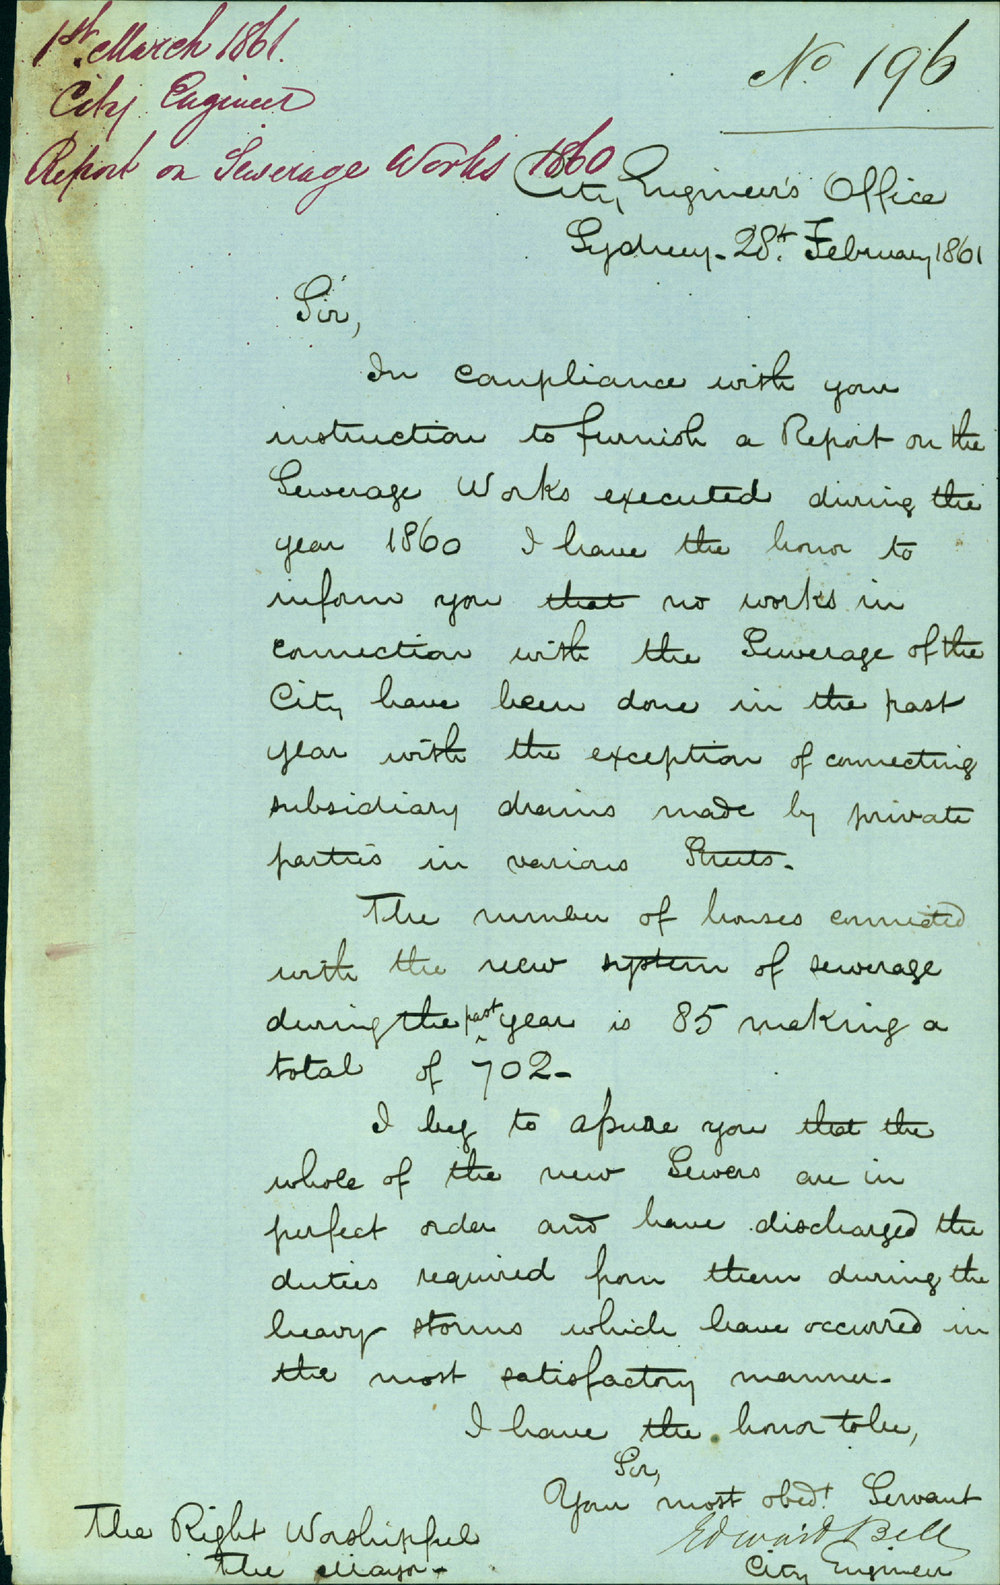 1st March 1861.
City Engineer
Report on Sewerage Works 1860
No 196
City Engineer's Office
Sydney - 28th February 1861
Sir,
In compliance with your
instruction to furnish a Report on the
Sewerage Works executed during the
year 1860 I have the honor to
inform you that no works in
connection with the Sewerage of the
City have been done in the past
year with the exception of connecting
subsidiary drains made by private
parties in various Streets -
The number of houses connected
with the new system of sewerage
during the past year is 85 making a
total of 702 -
I beg to assure you that the
whole of the new Sewers are in
perfect order and have discharged the
duties required from them during the
heavy storms which have occurred in
the most satisfactory manner -
I have the honor to be,
Sir,
Your most obedt. Servant
Edward Bell
City Engineer
The Right Worshipful
The Mayor -